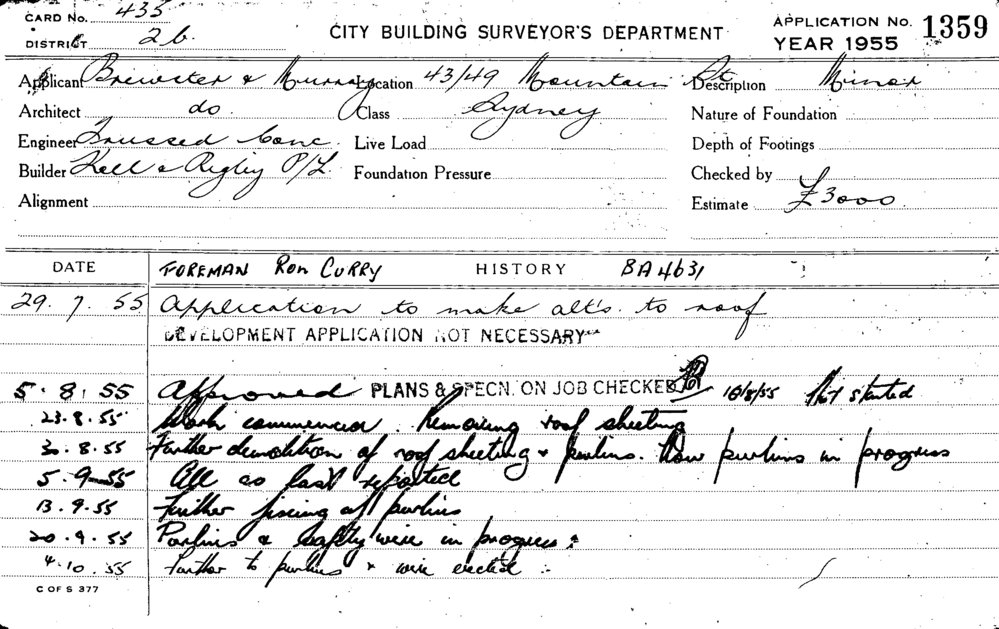 CARD No. 435
DISTRICT 26
CITY BUILDING SURVEYOR'S DEPARTMENT
APPLICATION No. 1359
YEAR 1955
Applicant Brewster & Murray Location 43/49 Mountain St Description Minor
Architect do Class Sydney Nature of Foundation
Engineer Trussed Conc. Live Load Depth of Footings
Builder Kell & Rigby P/L. Foundation Pressure Checked by
Alignment Estimate £3000
DATE FOREMAN RON CURRY HISTORY BA4631
29. 7. 55 Application to make alt's. to roof
DEVELOPMENT APPLICATION NOT NECESSARY
5. 8. 55 Approved PLANS & SPECN. ON JOB CHECKED 10/8/55 Not started
23.8.55 Work commenced. Removing roof sheeting
8.55 Further demolition of roof sheeting & purlins. New purlins in progress
5.9.55 All as last reported
13.9.55 Further fixing of purlins
20.9.55 Purlins & safety wire in progress
4.10.55 Further to purlins & wire erected
C OF S 377